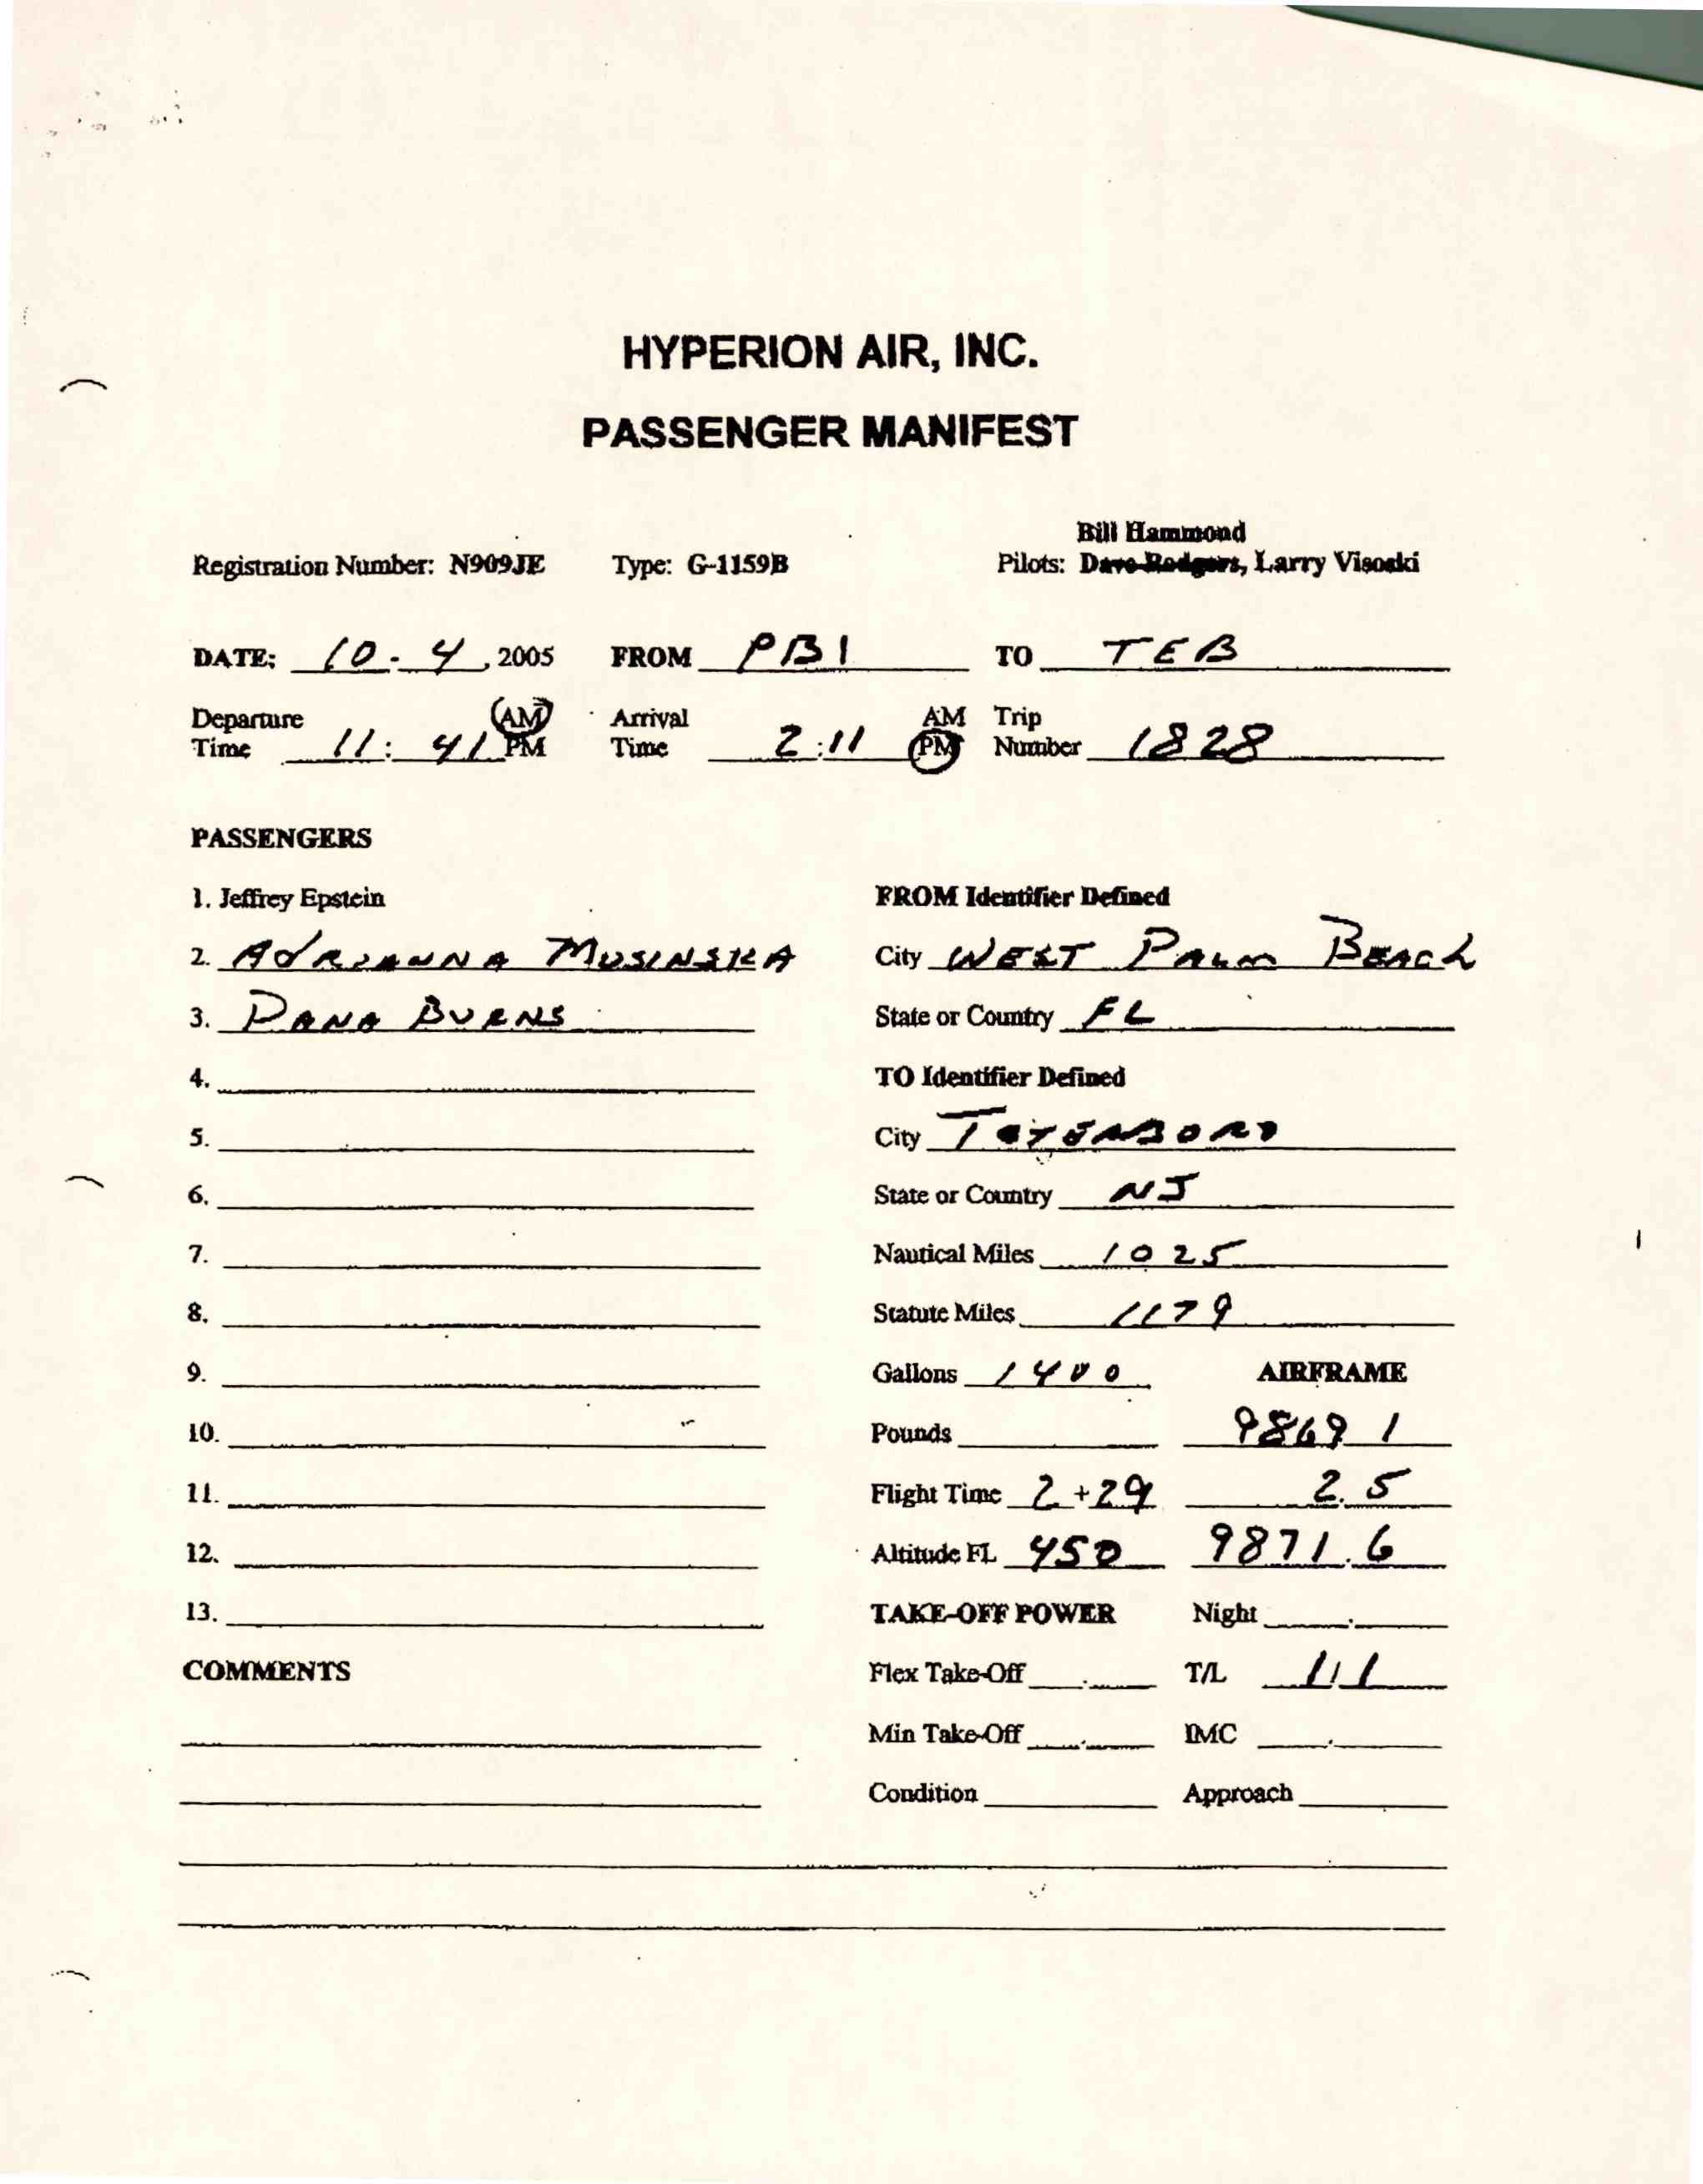 HYPERION AIR, INC.
PASSENGER MANIFEST
Bill Hammond
Registration Number: N909JE Type: G-1159B Pilots: Dave Rodgers, Larry Visoski
DATE: 10-4, 2005 FROM PBI TO TEB
Departure Time 11:41 AM PM Arrival Time 2:11 AM PM Trip Number 1828
PASSENGERS
1. Jeffrey Epstein FROM Identifier Defined
2. ADRIANNA MUSINSKA City WEST PALM BEACH
3. DANA BURNS State or Country FL
4. TO Identifier Defined
5. City TETERBORO
6. State or Country NJ
7. Nautical Miles 1025
8. Statute Miles 1179
9. Gallons 1400 AIRFRAME
10. Pounds 9869 1
11. Flight Time 2+29 2.5
12. Altitude FL 450 9871.6
13. TAKE-OFF POWER Night
COMMENTS Flex Take-Off T/L 1/1
Min Take-Off IMC
Condition Approach